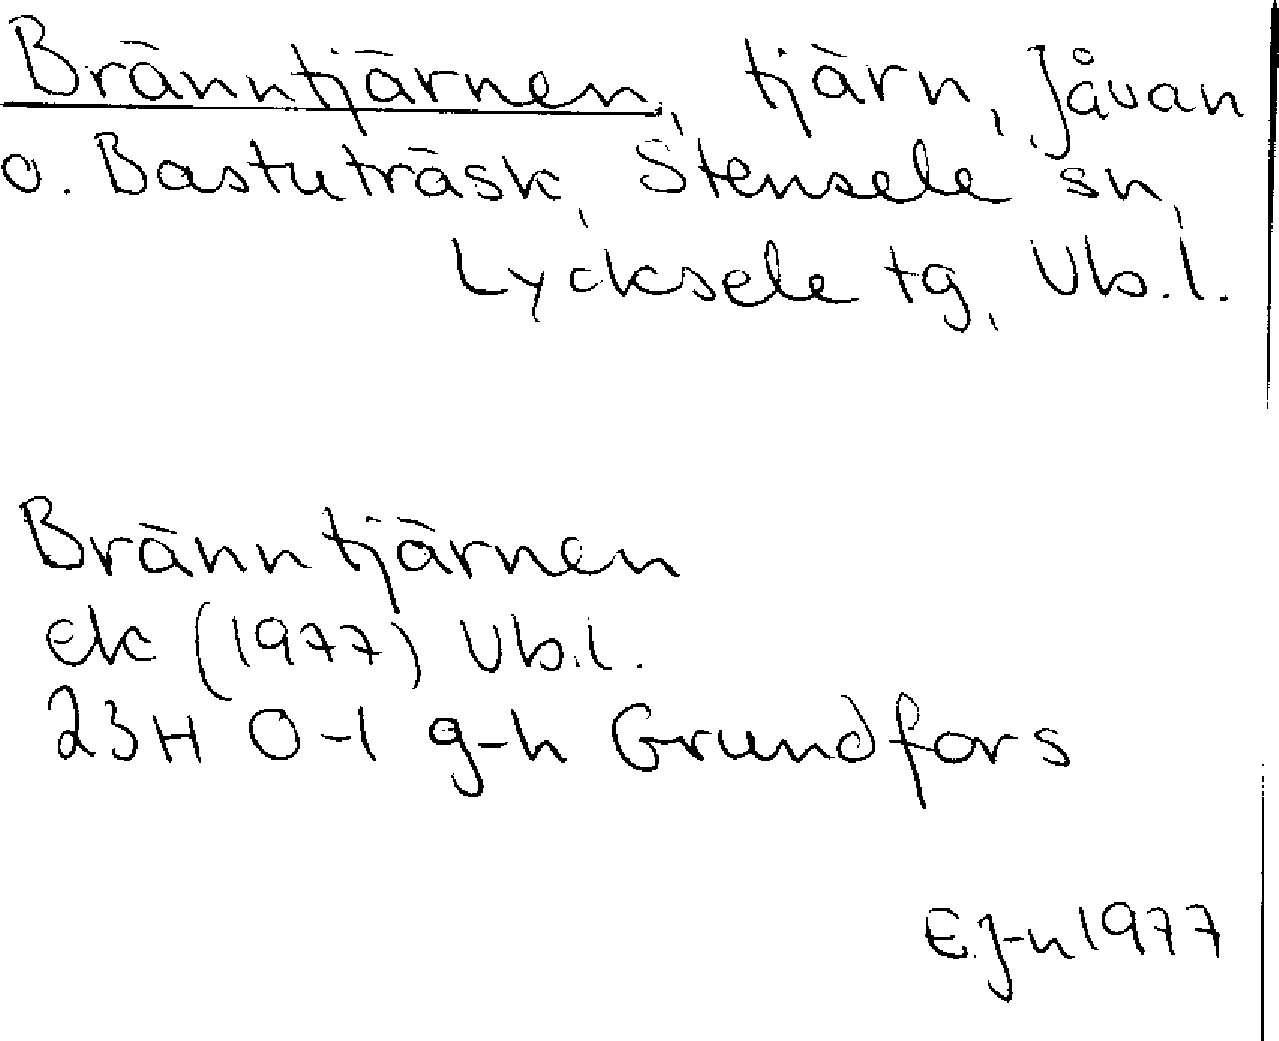 Bränntjärnen, tjärn, Jåvan
o. Bastuträsk, Stensele sn,
Lycksele tg, Vb.l.
Bränntjärnen
ek (1977) Vb.l.
23H 0-1 g-h Grundfors
E.J-n 1977